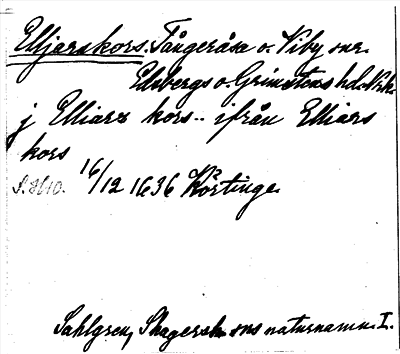 Elljarskors. Tångeråsa o. Viby snr.
Edsbergs o. Grimstens hd. Nrk.
j Elliarz kors.. ifrån Elliars
kors
16/12 1636 Körtinge.
Sahlgren, Skagersh. sns naturnamn. I.